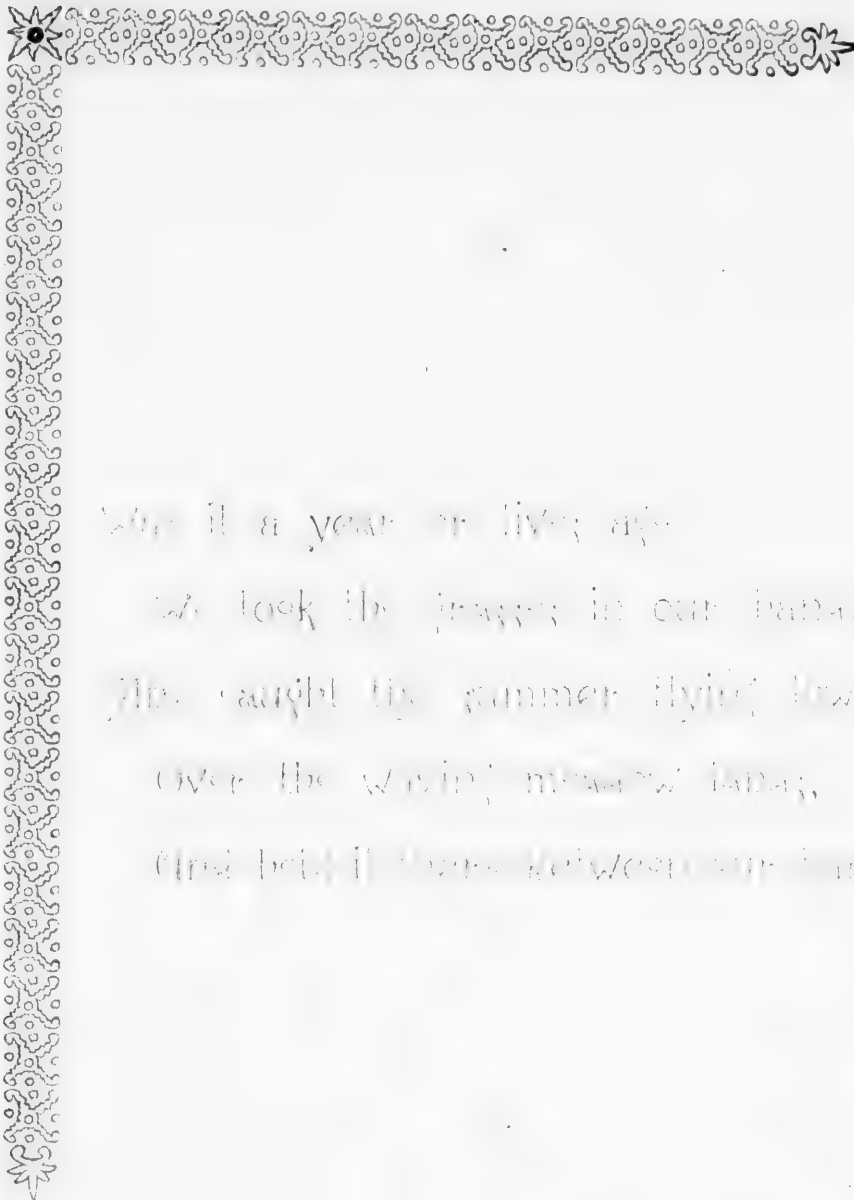 Was it a year or lives ago
We took the grasses in our hands
And caught the summer flying low
Over the waving meadow lands,
And held it there between our